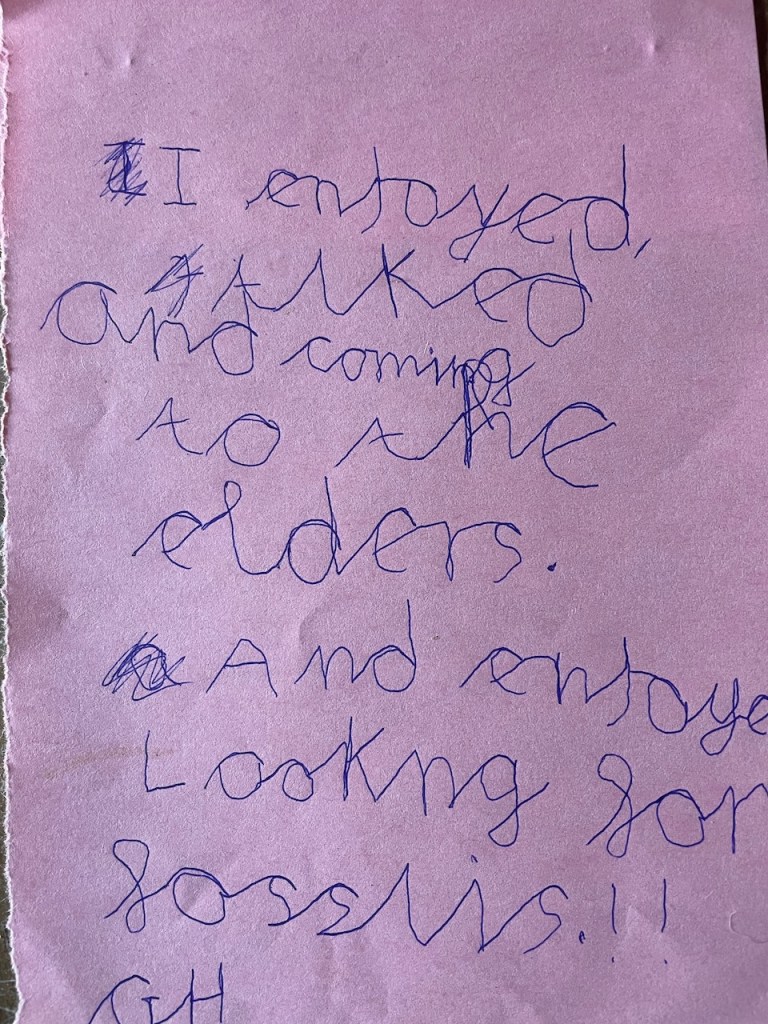 I enjoyed,
talked
and coming
to the
elders.
And enjoye
Lookng for
fosslis.!!
GH